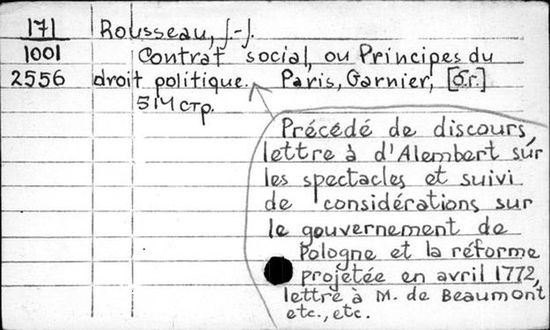 171 Rousseau, J.-J.
1001 Contrat social, ou Principes du
2556 droit politique. Paris, Garnier, [б.г.]
514 стр.
Précédé de discours,
lettre à d'Alembert sur
les spectacles et suivi
de considérations sur
le gouvernement de
Pologne et la réforme
projetée en avril 1772,
lettre à M. de Beaumont
etc., etc.